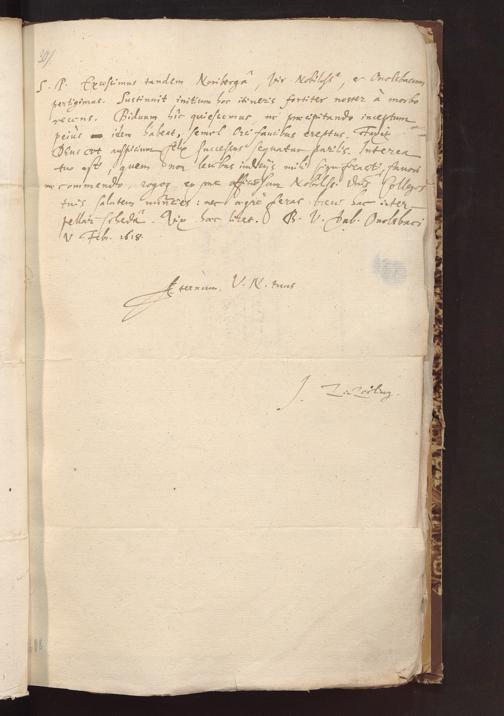 301
S. P. Excessimus tandem Noriberga, Vir Nobiliss., et Onoldbacum
pertigimus. Sustinuit initium hoc itineris fortiter noster à morbo
recens. Biduum hic quiescemus, ne præcipitando inceptum
peius idem habeat, semel Orci faucibus ereptus. Faxit
Deus ut auspicium successus sequatur parilis. Interea
tuo, quem non levibus indicijs mihi significasti, favori
me commendo, rogo, ex me officiosam Nobiliss. Dnis Collegis
tuis salutem nuncies: nec ægre feras brevi hac inter
pellari scheda. Vix hoc licet. B. V. Dab. Onoldbaci
V Feb. 1618.
Æternum V. N. tuus
J. Zinzerling.